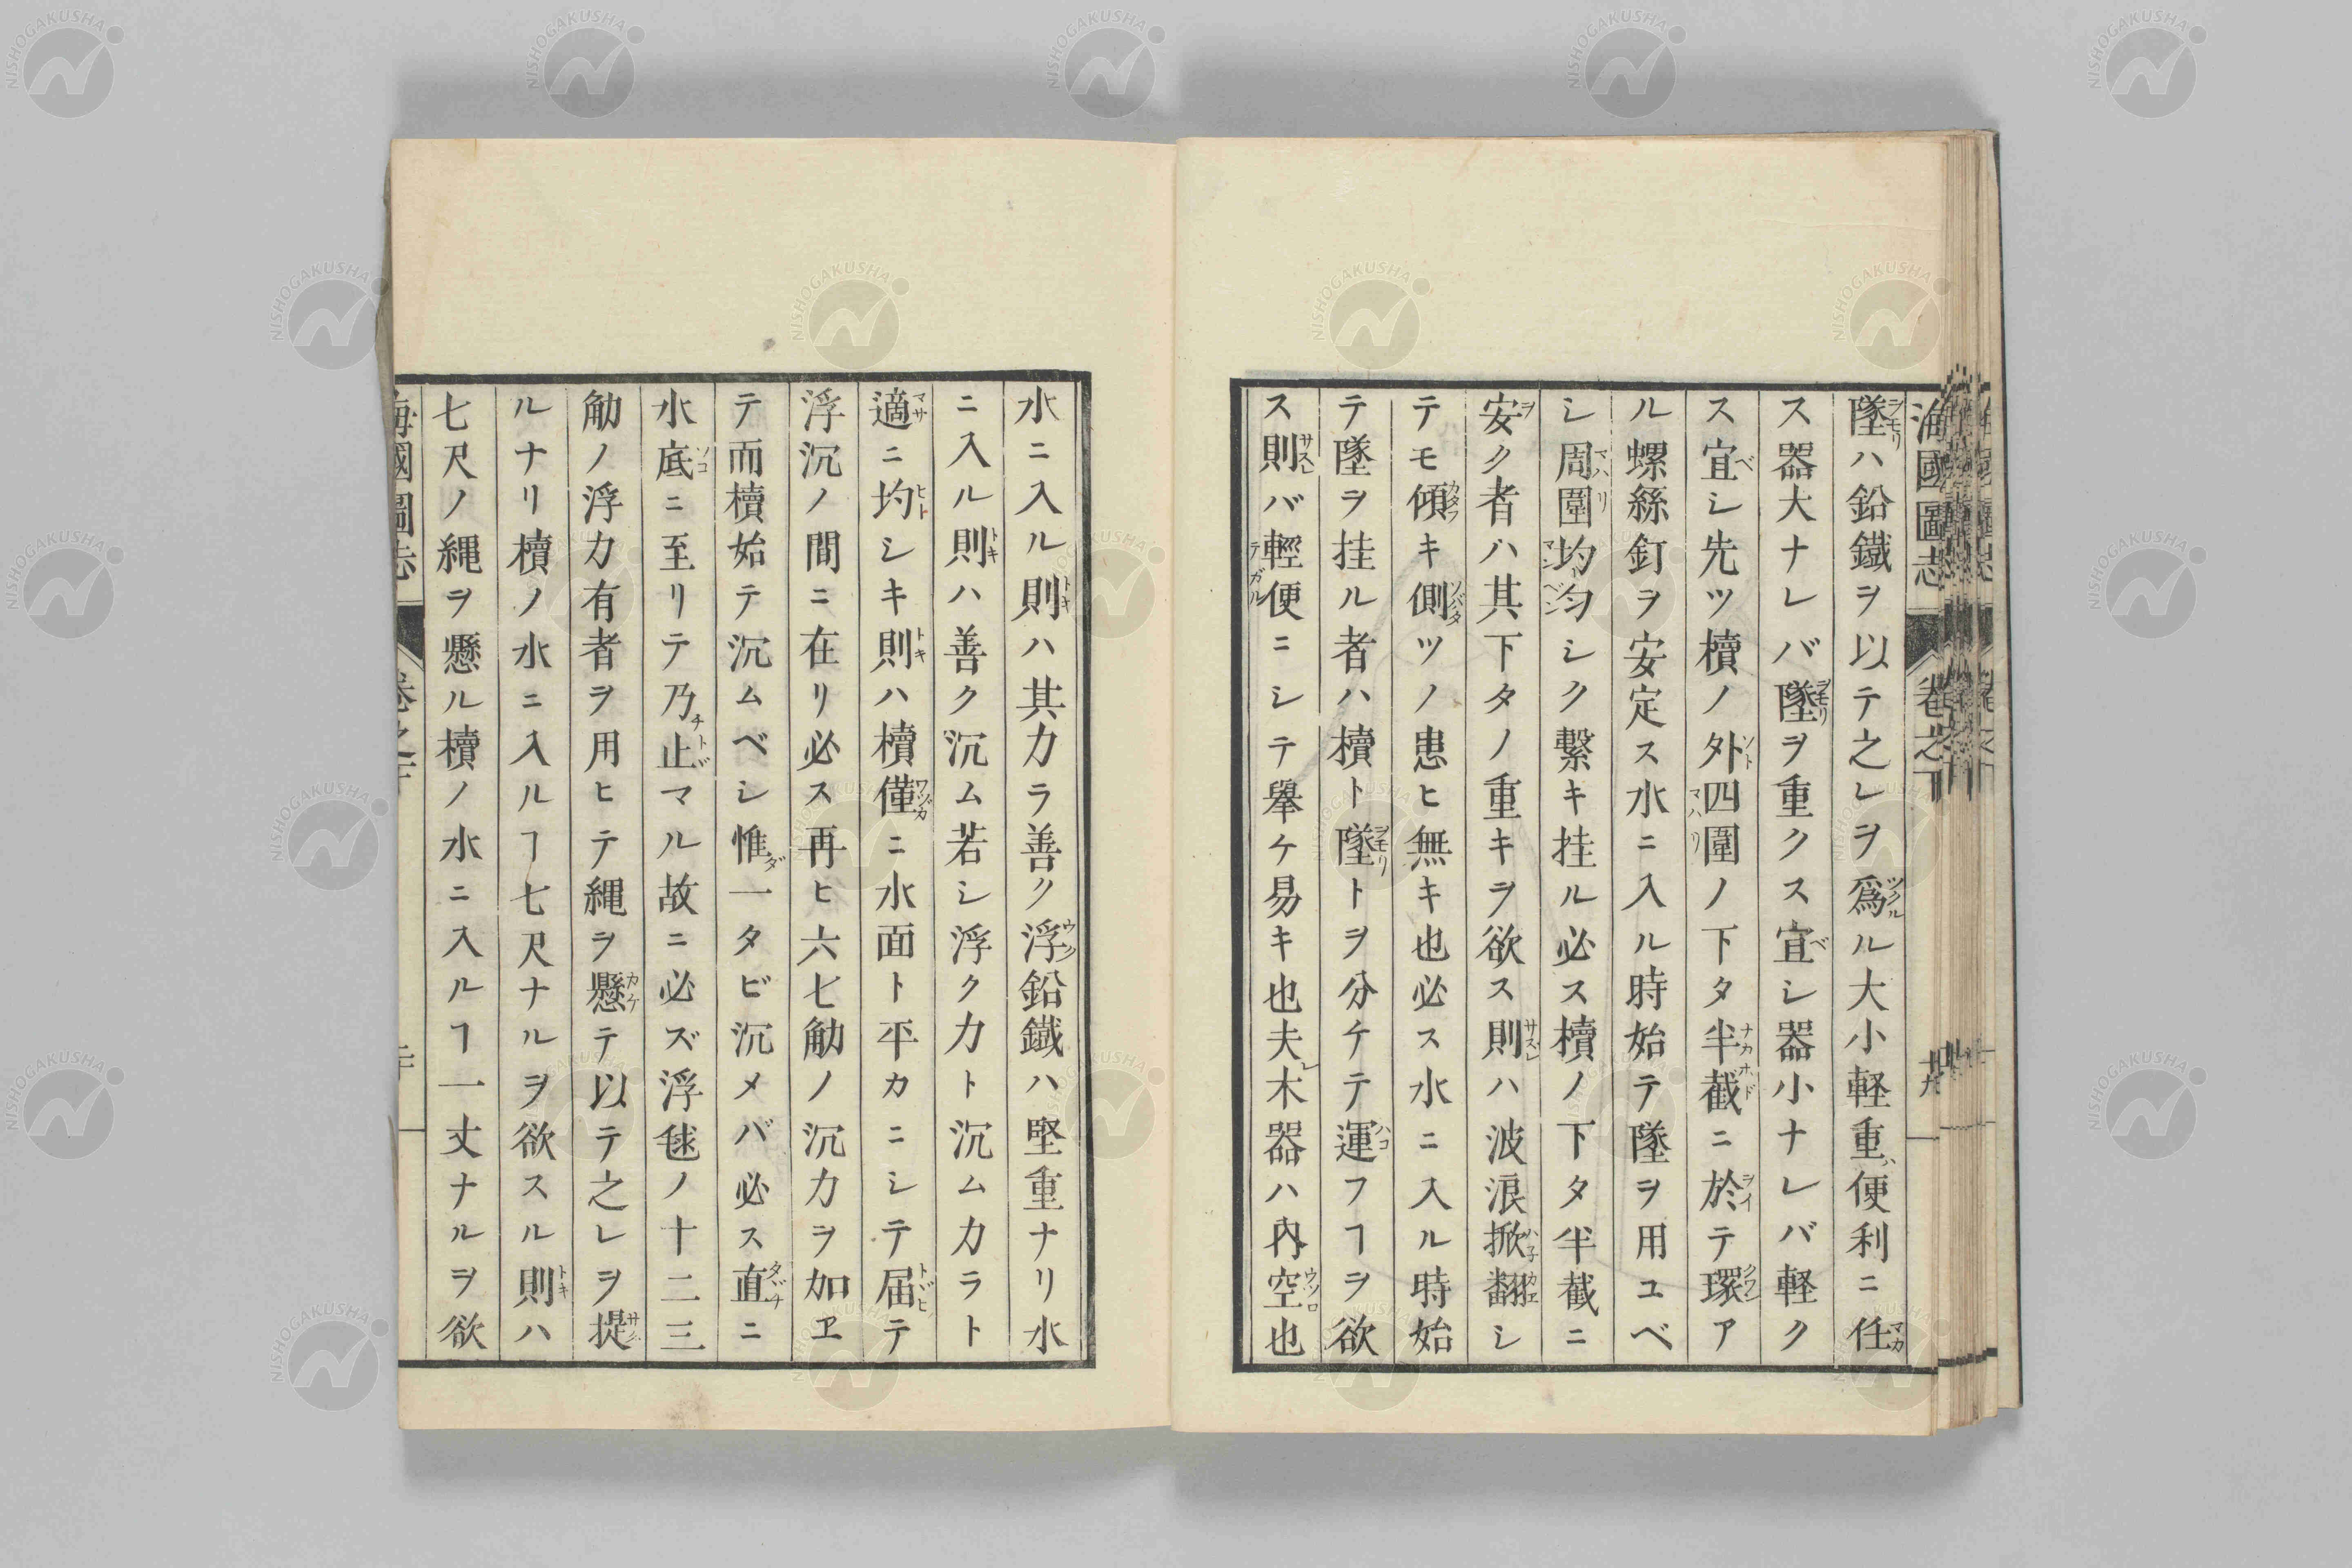 海國圖志 卷之下 十九
墜ハ鉛鐵ヲ以テ之レヲ爲ル大小軽重便利ニ任
ス器大ナレバ墜ヲ重クス宜シ器小ナレバ軽ク
ス宜シ先ツ櫝ノ外四圍ノ下タ半截ニ於テ環ア
ル螺絲釘ヲ安定ス水ニ入ル時始テ墜ヲ用ユベ
シ周圍均匀シク繫キ挂ル必ス櫝ノ下タ半截ニ
安ク者ハ其下タノ重キヲ欲ス則ハ波浪掀翻シ
テモ傾キ側ツノ患ヒ無キ也必ス水ニ入ル時始
テ墜ヲ挂ル者ハ櫝ト墜トヲ分ケテ運フヿヲ欲
ス則バ輕便ニシテ舉ケ易キ也夫木器ハ內空也
水ニ入ル則ハ其力ラ善ク浮鉛鐵ハ堅重ナリ水
ニ入ル則ハ善ク沉ム若シ浮ク力ト沉ム力ラト
適ニ均シキ則ハ櫝僅ニ水面ト平カニシテ届テ
浮沉ノ間ニ在リ必ス再ヒ六七觔ノ沉力ヲ加ヱ
テ而櫝始テ沉ムベシ惟一タビ沉メバ必ス直ニ
水底ニ至リテ乃止マル故ニ必ズ浮毬ノ十二三
觔ノ浮力有者ヲ用ヒテ縄ヲ懸テ以テ之レヲ提
ルナリ櫝ノ水ニ入ルヿ七尺ナルヲ欲スル則ハ
七尺ノ縄ヲ懸ル櫝ノ水ニ入ルヿ一丈ナルヲ欲
海國圖志
NISHOGAKUSHA